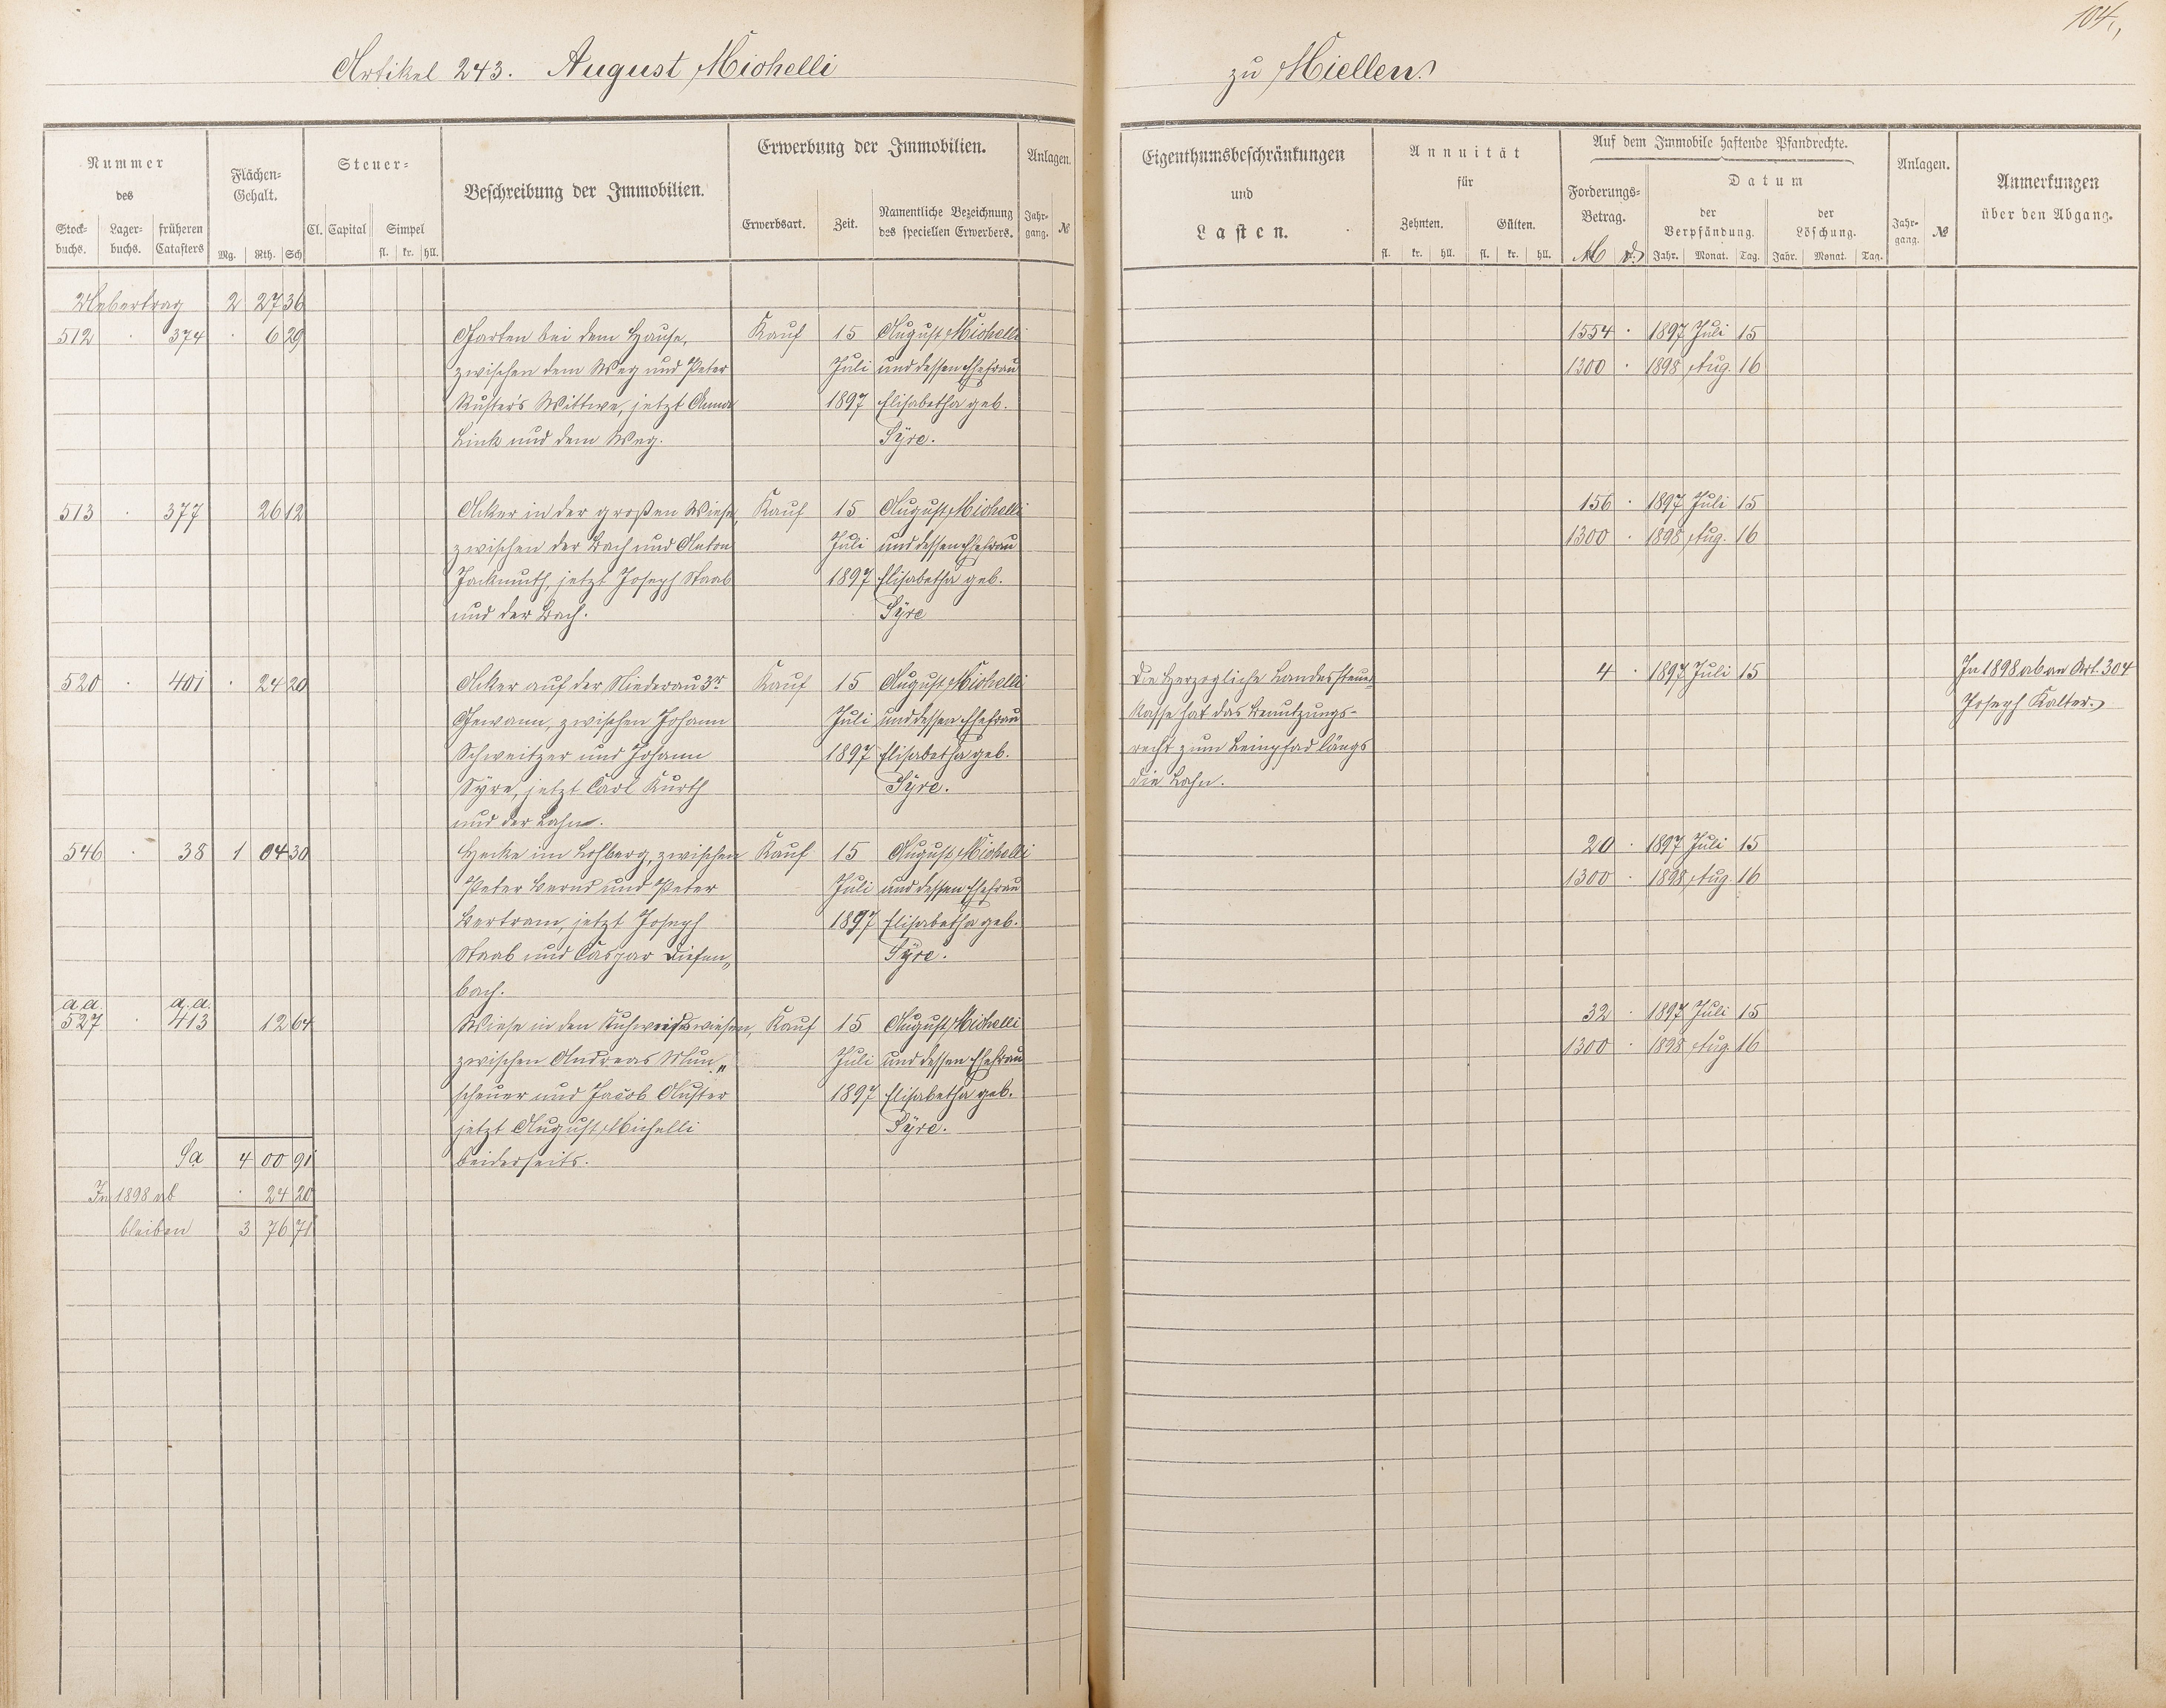 104.
Artikel 243. August Michelli zu Miellen.
Nummer
des
Stock-
buchs.
Lager-
buchs.
früheren
Catasters
Flächen-
Gehalt.
Mg. Rth. Sch
Steuer-
Cl. Capital Simpel
fl. kr. hll.
Beschreibung der Immobilien.
Erwerbung der Immobilien.
Erwerbsart. Zeit.
Namentliche Bezeichnung
des speciellen Erwerbers.
Anlagen.
Jahr-
gang.
№
Eigenthumsbeschränkungen
und
Lasten.
Annuität
für
Zehnten. Gülten.
fl. kr. hll. fl. kr. hll.
Auf dem Immobile haftende Pfandrechte.
Forderungs-
Betrag.
M d.
Datum
der
Verpfändung.
der
Löschung.
Jahr. Monat. Tag. Jahr. Monat. Tag.
Anlagen.
Jahr-
gang.
№
Anmerkungen
über den Abgang.
Uebertrag 2 27 36
512 · 374 · 6 29 Garten bei dem Hause, Kauf 15 August Michelli 1554 · 1897 Juli 15
zwischen dem Weg und Peter Juli und dessen Ehefrau 1300 · 1898 Aug. 16
Kuster's Wittwe, jetzt Anna 1897 Elisabetha geb.
Link und dem Weg. Syre.
513 · 377 26 12 Acker in der großen Wiese, Kauf 15 August Michelli 156 · 1897 Juli 15
zwischen der Bach und Anton Juli und dessen Ehefrau 1300 · 1898 Aug. 16
Jackmuth, jetzt Joseph Staab 1897 Elisabetha geb.
und der Bach. Syre
520 · 401 · 24 20 Acker auf der Niederau 3r Kauf 15 August Michelli Die Herzogliche Landessteuer- 4 · 1897 Juli 15 In 1898 ab an Art. 304
Gewann, zwischen Johann Juli und dessen Ehefrau Kasse hat das Benutzungs- Joseph Kalter.
Schweitzer und Johann 1897 Elisabetha geb. recht zum Leinpfad längs
Syre, jetzt Carl Kurth Syre. die Lahn.
und der Lahn.
546 · 38 1 04 30 Hecke im Lohberg, zwischen Kauf 15 August Michelli 20 · 1897 Juli 15
Peter Bernd und Peter Juli und dessen Ehefrau 1300 · 1898 Aug. 16
Bertram, jetzt Joseph 1897 Elisabetha geb.
Staab und Caspar Diefen„ Syre.
bach.
a.a. a.a.
527 · 413 12 64 Wiese in den Kuhweidswiesen, Kauf 15 August Michelli 32 · 1897 Juli 15
zwischen Andreas Mun„ Juli und dessen Ehefrau 1300 · 1898 Aug. 16
scheuer und Jacob Kuster 1897 Elisabetha geb.
jetzt August Michelli Syre.
Sa 4 00 91 beiderseits.
In 1898 ab · 24 20
bleiben 3 76 71